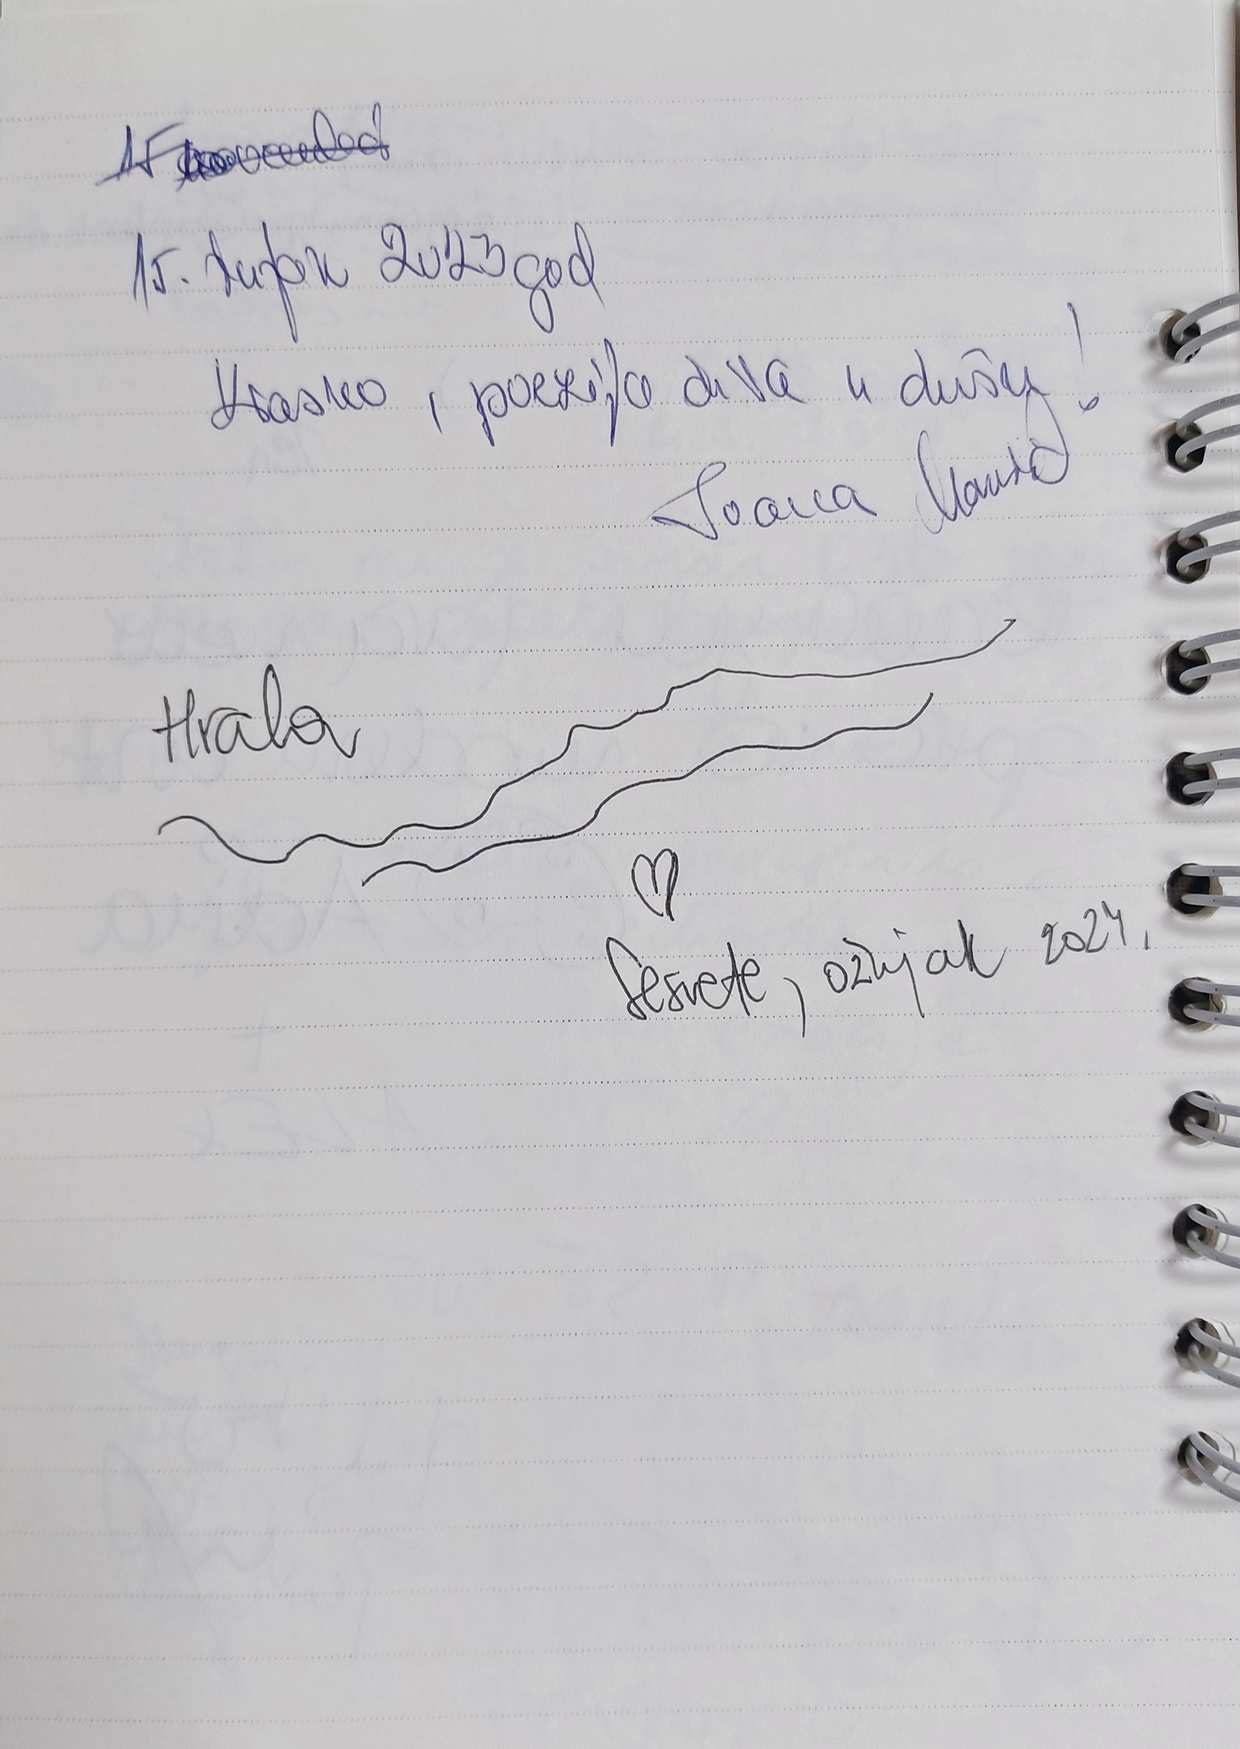 15. rujan 2023 god
Krasno, poezija dira u dušu!
Ivana
Hvala
Sesvete, ožujak 2024.